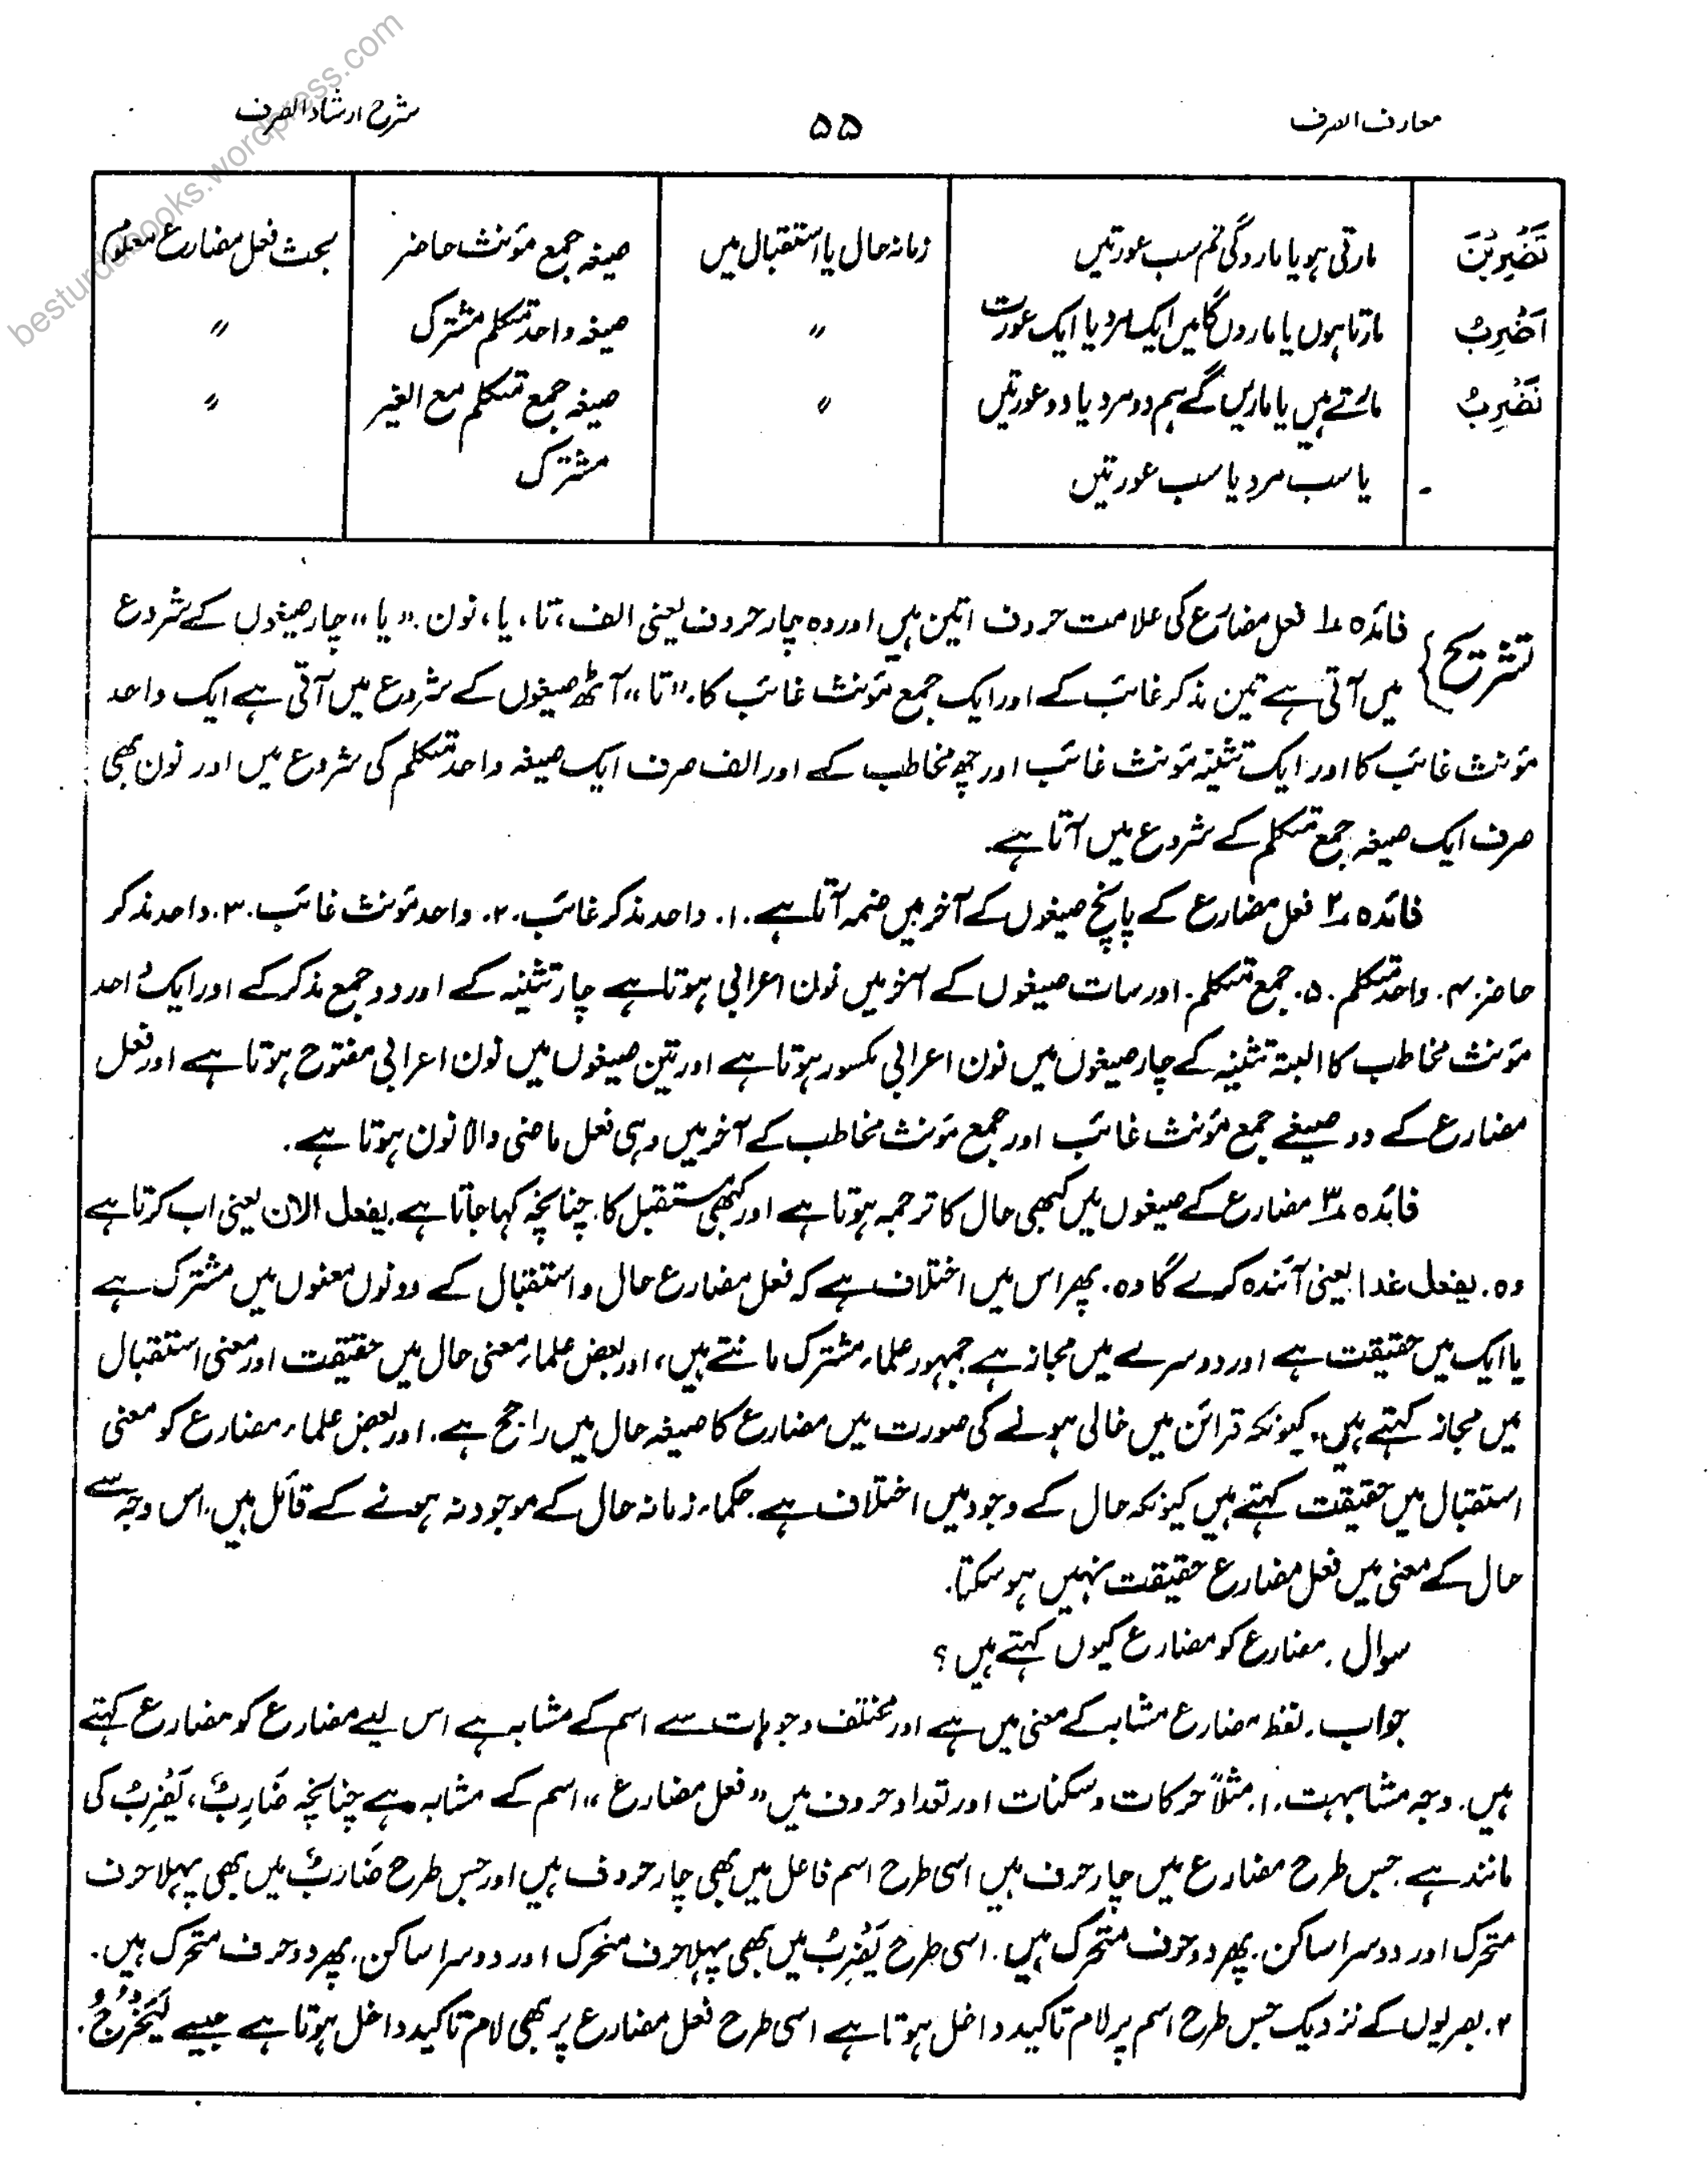 معارف الصرف
۵۵
شرح ارشاد الصرف
besturdubooks.wordpress.com
تَضْرِبْنَ مارتی ہو یا مارو گی تم سب عورتیں زمانہ حال یا استقبال میں صیغہ جمع مؤنث حاضر بحث فعل مضارع معلوم
اَضْرِبُ مارتا ہوں یا ماروں گا میں ایک مرد یا ایک عورت 〃 صیغہ واحد متکلم مشترک 〃
نَضْرِبُ مارتے ہیں یا ماریں گے ہم دو مرد یا دو عورتیں 〃 صیغہ جمع متکلم مع الغیر 〃
یا سب مرد یا سب عورتیں مشترک
تشریح} فائدہ ۱ فعل مضارع کی علامت حروف اتین ہیں اور وہ چار حروف یعنی الف، تا، یا، نون۔ "یا" چار صیغوں کے شروع
میں آتی ہے تین مذکر غائب کے اور ایک جمع مؤنث غائب کا۔ "تا" آٹھ صیغوں کے شروع میں آتی ہے ایک واحد
مؤنث غائب کا اور ایک تثنیہ مؤنث غائب اور چھ مخاطب کے اور الف صرف ایک صیغہ واحد متکلم کی شروع میں اور نون بھی
صرف ایک صیغہ جمع متکلم کے شروع میں آتا ہے۔
فائدہ ۲ فعل مضارع کے پانچ صیغوں کے آخر میں ضمہ آتا ہے۔ ۱۔ واحد مذکر غائب۔ ۲۔ واحد مؤنث غائب۔ ۳۔ واحد مذکر
حاضر۔ ۴۔ واحد متکلم۔ ۵۔ جمع متکلم۔ اور سات صیغوں کے آخر میں نون اعرابی ہوتا ہے چار تثنیہ کے اور دو جمع مذکر کے اور ایک واحد
مؤنث مخاطب کا البتہ تثنیہ کے چار صیغوں میں نون اعرابی مکسور ہوتا ہے اور تین صیغوں میں نون اعرابی مفتوح ہوتا ہے اور فعل
مضارع کے دو صیغے جمع مؤنث غائب اور جمع مؤنث مخاطب کے آخر میں وہی فعل ماضی والا نون ہوتا ہے۔
فائدہ ۳ مضارع کے صیغوں میں کبھی حال کا ترجمہ ہوتا ہے اور کبھی مستقبل کا۔ چنانچہ کہا جاتا ہے۔ یفعل الان یعنی اب کرتا ہے
وہ۔ یفعل غدا یعنی آئندہ کرے گا وہ۔ پھر اس میں اختلاف ہے کہ فعل مضارع حال و استقبال کے دونوں معنوں میں مشترک ہے
یا ایک میں حقیقت ہے اور دوسرے میں مجاز ہے جمہور علماء مشترک مانتے ہیں، اور بعض علماء معنی حال میں حقیقت اور معنی استقبال
میں مجاز کہتے ہیں۔ کیونکہ قرائن میں خالی ہونے کی صورت میں مضارع کا صیغہ حال میں راجح ہے۔ اور بعض علماء مضارع کو معنی
استقبال میں حقیقت کہتے ہیں کیونکہ حال کے وجود میں اختلاف ہے۔ حکماء زمانہ حال کے موجود نہ ہونے کے قائل ہیں، اس وجہ سے
حال کے معنی میں فعل مضارع حقیقت نہیں ہو سکتا۔
سوال۔ مضارع کو مضارع کیوں کہتے ہیں؟
جواب۔ لفظ مضارع مشابہ کے معنی میں ہے اور مختلف وجوہات سے اسم کے مشابہ ہے اس لیے مضارع کو مضارع کہتے
ہیں۔ وجہ مشابہت۔ ۱۔ مثلاً حرکات و سکنات اور تعداد حروف میں "فعل مضارع" اسم کے مشابہ ہے چنانچہ ضَارِبٌ، یَضْرِبُ کی
مانند ہے۔ جس طرح مضارع میں چار حرف ہیں اسی طرح اسم فاعل میں بھی چار حروف ہیں اور جس طرح ضَارِبٌ میں بھی پہلا حرف
متحرک اور دوسرا ساکن۔ پھر دو حرف متحرک ہیں۔ اسی طرح یَضْرِبُ میں بھی پہلا حرف متحرک اور دوسرا ساکن۔ پھر دو حرف متحرک ہیں۔
۲۔ بصریوں کے نزدیک جس طرح اسم پر لام تاکید داخل ہوتا ہے اسی طرح فعل مضارع پر بھی لام تاکید داخل ہوتا ہے جیسے لَیَخْرُجُ۔